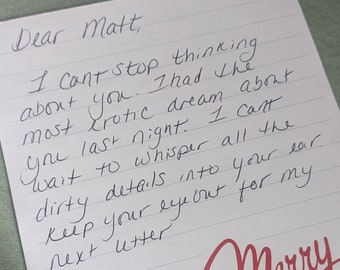 Dear Matt,
I cant stop thinking
about you. I had the
most erotic dream about
you last night. I cant
wait to whisper all the
dirty details into your ear
Keep your eye out for my
next letter
Merry